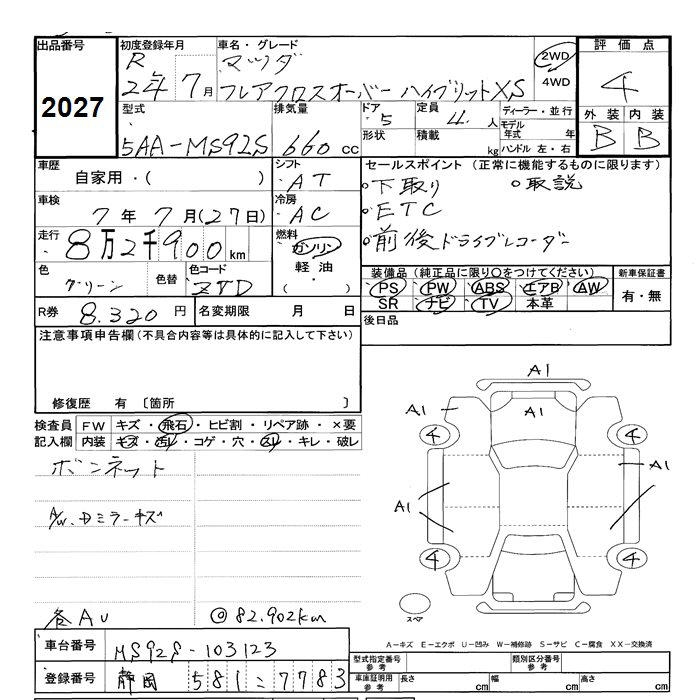 出品番号 初度登録年月 車名・グレード 評価点
2027
R 2年7月 マツダ 2WD 4WD 4
フレアクロスオーバー ハイブリットXS
外装 内装
B B
型式 排気量 ドア 定員 ディーラー・並行
5AA-MS92S 660cc 5 4人 モデル年式 年
形状 積載 kg ハンドル 左・右
車歴 自家用・( ) シフト AT セールスポイント (正常に機能するものに限ります)
○下取り ○取説
車検 7年7月(27日) 冷房 AC ○ETC
走行 8万2千900km 燃料 ガソリン ○前後ドライブレコーダー
軽油・( )
色 グリーン 色替 色コード ZTD
装備品(純正品に限り○をつけてください) 新車保証書
PS PW ABS エアB AW 有・無
SR ナビ TV 本革
R券 8.320円 名変期限 月 日 後日品
注意事項申告欄(不具合内容等は具体的に記入して下さい)
修復歴 有〔箇所 〕
検査員記入欄 FW キズ・飛石・ヒビ割・リペア跡・×要
内装 キズ・汚レ・コゲ・穴・スレ・キレ・破レ
ボンネット
A/W.Dミラーキズ
各AU ◎82.902km
A1
A1 A1
4 4
A1 A1
4 4
スペア
A-キズ E-エクボ U-凹み W-補修跡 S-サビ C-腐食 XX-交換済
車台番号 MS92S-103123
登録番号 静岡 581こ7783
型式指定番号 参考 類別区分番号 参考
車庫証明用 参考 長さ cm 幅 cm 高さ cm